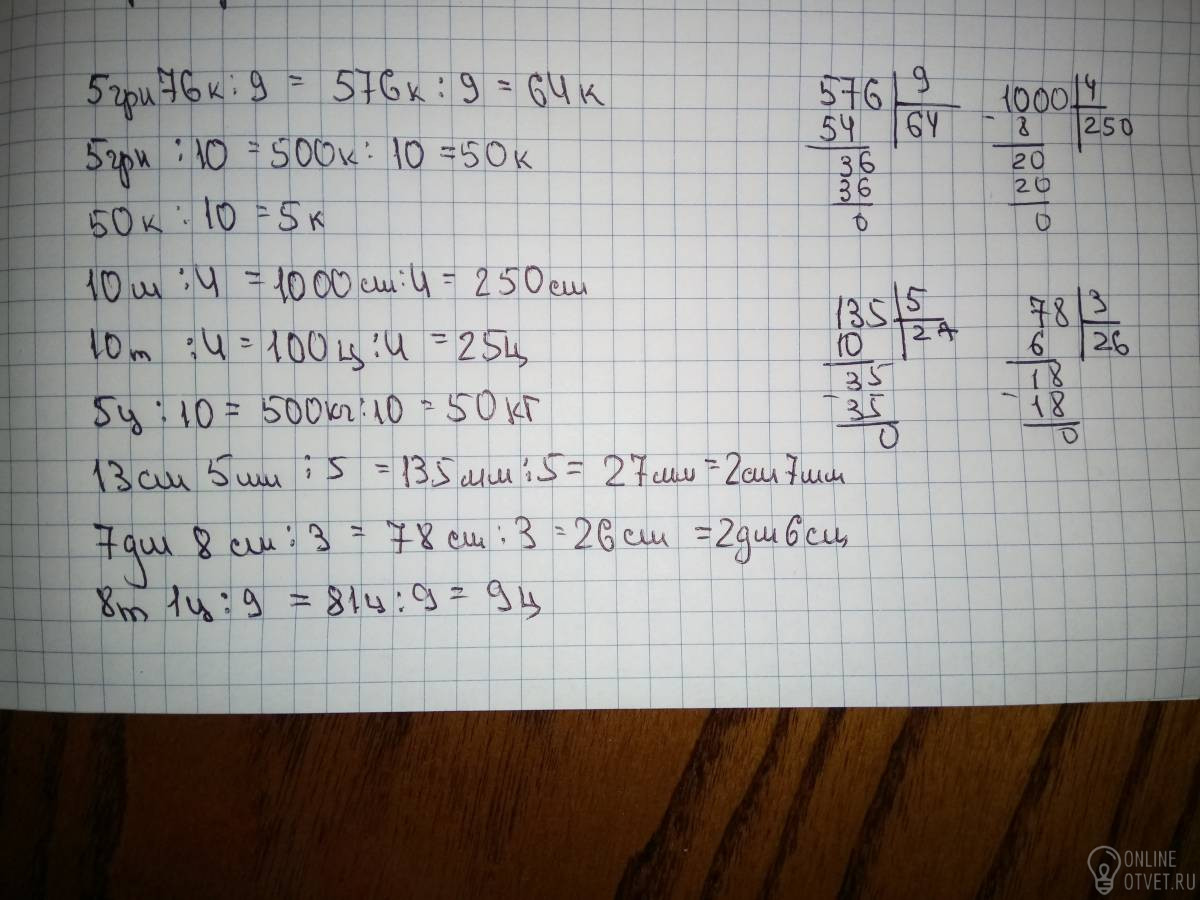 5грн76к : 9 = 576к : 9 = 64к
5грн : 10 = 500к : 10 = 50к
50к : 10 = 5к
10м : 4 = 1000см : 4 = 250см
10т : 4 = 100ц : 4 = 25ц
5ц : 10 = 500кг : 10 = 50кг
13см 5мм : 5 = 135мм : 5 = 27мм = 2см7мм
7дм 8см : 3 = 78см : 3 = 26см = 2дм6см
8т 1ц : 9 = 81ц : 9 = 9ц
576 9
54 64
36
36
0
1000 4
- 8 250
20
20
0
135 5
10 27
35
- 35
0
78 3
6 26
18
- 18
0
ONLINE
OTVET.RU